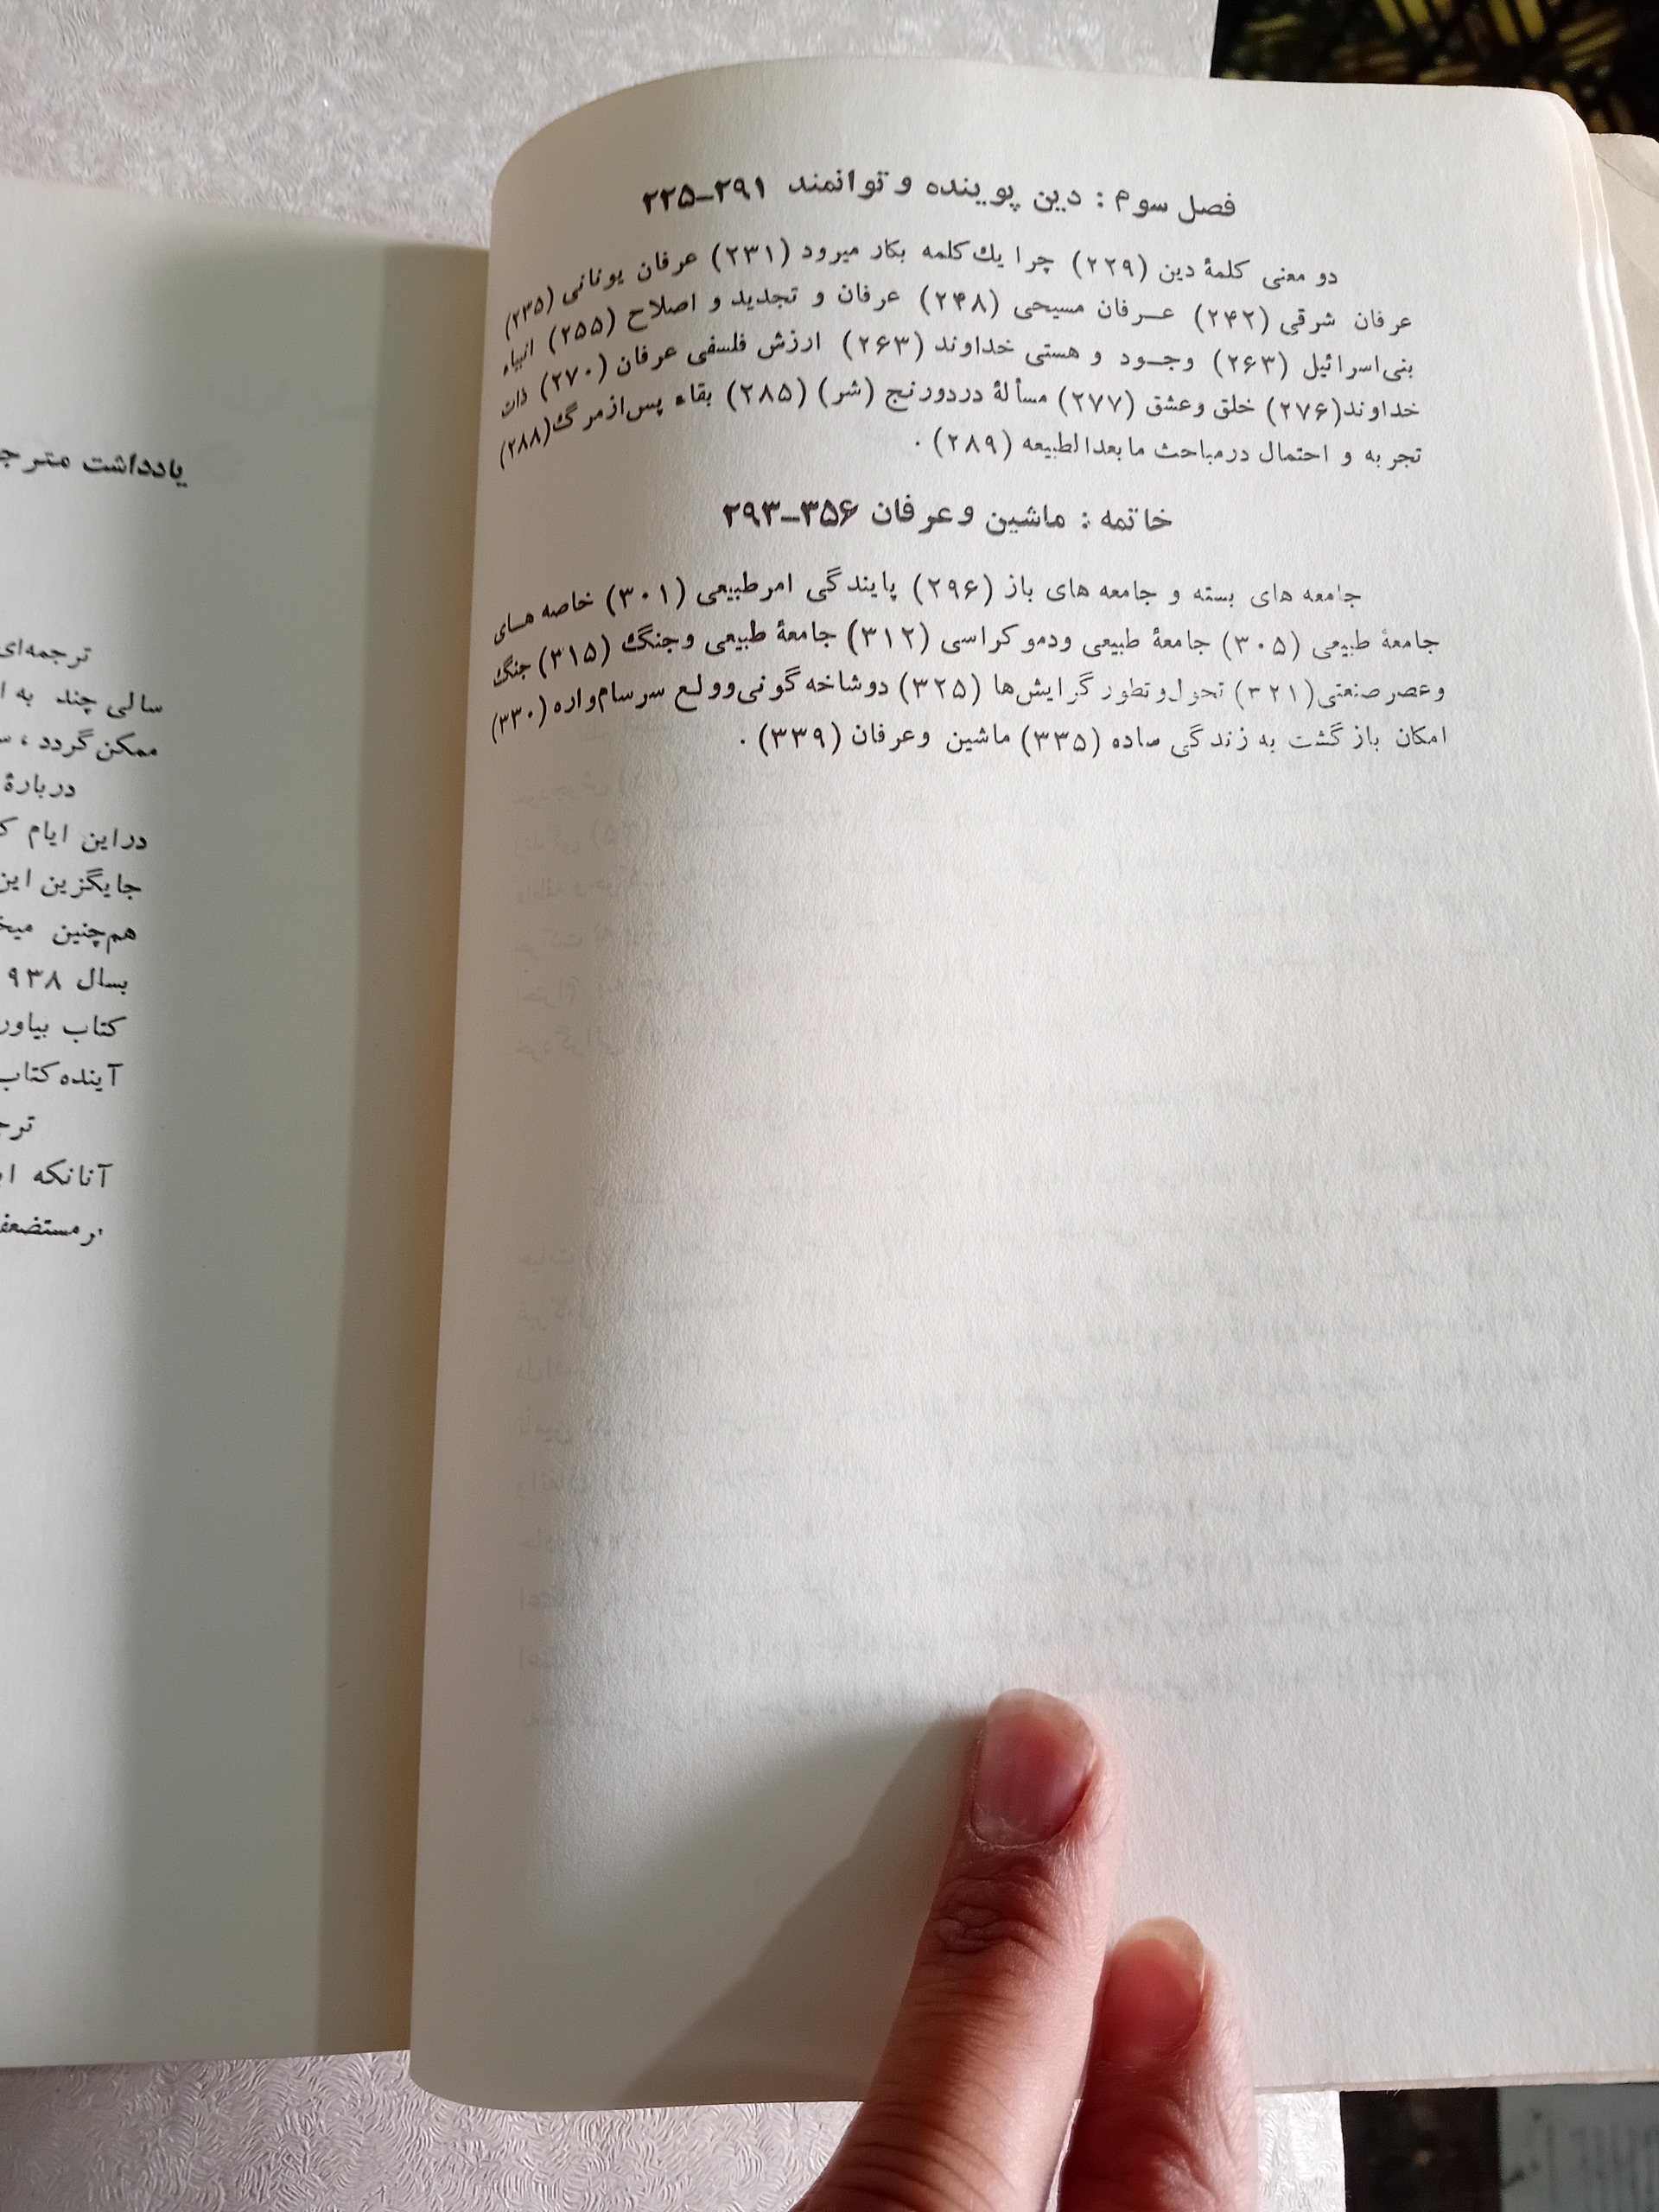 فصل سوم : دین پوینده و توانمند ۲۹۱-۲۲۵
دو معنی کلمهٔ دین (۲۲۹) چرا یك کلمه بکار میرود (۲۳۱) عرفان یونانی (۲۳۵)
عرفان شرقی (۲۴۲) عــرفان مسیحی (۲۴۸) عرفان و تجدید و اصلاح (۲۵۵) انبیاء
بنی‌اسرائیل (۲۶۳) وجــود و هستی خداوند (۲۶۳) ارزش فلسفی عرفان (۲۷۰) ذات
خداوند(۲۷۶) خلق وعشق (۲۷۷) مسألهٔ دردورنج (شر) (۲۸۵) بقاء پس‌ازمرگ(۲۸۸)
تجربه و احتمال درمباحث مابعدالطبیعه (۲۸۹) .
خاتمه : ماشین وعرفان ۳۵۶-۲۹۳
جامعه های بسته و جامعه های باز (۲۹۶) پایندگی امرطبیعی (۳۰۱) خاصه هــای
جامعهٔ طبیعی (۳۰۵) جامعهٔ طبیعی ودموکراسی (۳۱۲) جامعهٔ طبیعی وجنگ (۳۱۵) جنگ
وعصرصنعتی(۳۲۱) تحول‌وتطور گرایش‌ها (۳۲۵) دوشاخه گونی‌وولـع سرسام‌واره (۳۳۰)
امکان بازگشت به زندگی ساده (۳۳۵) ماشین وعرفان (۳۳۹) .
یادداشت
ترجمه‌ای
سالی چند به
ممکن‌گردد ،
دربارهٔ
دراین ایام
جایگزین این
هم‌چنین
بسال ۹۳۸
کتاب
آینده‌کتاب
آنانکه